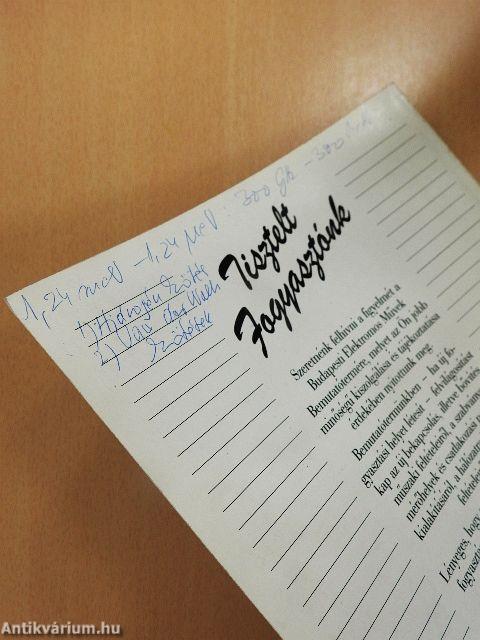 1,24 meV - 1,24 MeV 300 GHz - 300
1) Hidrogén kötés
2) Van der Waals
kötések
Tisztelt
Fogyasztónk
Szeretnénk felhívni a figyelmét a
Budapesti Elektromos Művek
Bemutatótermére, melyet az Ön jobb
minőségű kiszolgálása és tájékoztatása
érdekében nyitottunk meg.
Bemutatótermünkben – ha új fo-
gyasztási helyet létesít – felvilágosítást
kap az új bekapcsolás, illetve bővítés
műszaki feltételeiről, a szabványos
mérőhelyek és csatlakozási
kialakításáról, a hálózatra
feltételei
Lényeges, hogy
fogyasztó
Antikvárium.hu